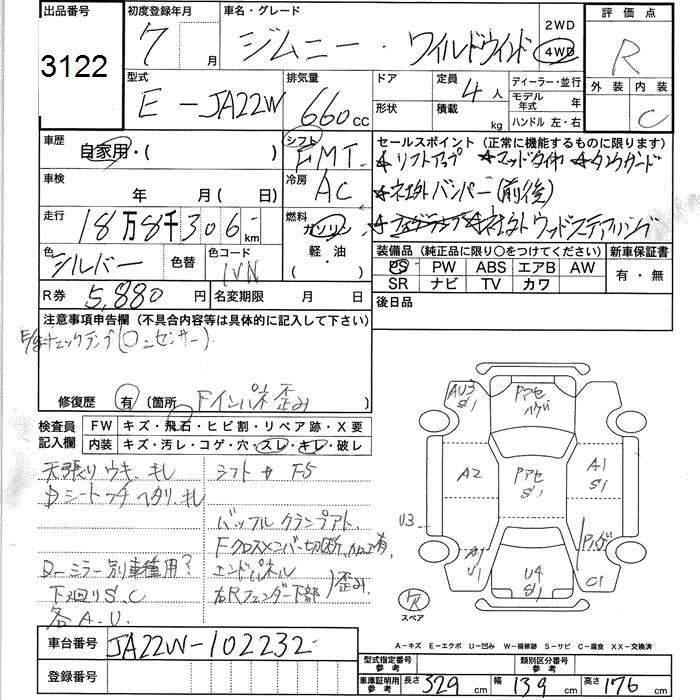 出品番号 初度登録年月 車名・グレード 2WD 評価点
3122 7 月 ジムニー・ワイルドウインド 4WD R
外装 内装
C
型式 排気量 ドア 定員 ディーラー・並行
E-JA22W 660 cc 4 人 モデル年式 年
形状 積載 kg ハンドル 左・右
車歴 シフト セールスポイント (正常に機能するものに限ります)
自家用・( ) FMT ☆リフトアップ ☆マッドタイヤ ☆タウガード
車検 冷房 ☆社外バンパー(前後)
年 月 日 AC
走行 燃料 ☆社外ウッドステアリング
18万8千306 km ガソリン
軽・油
色 色替 色コード 装備品 (純正品に限り○をつけてください) 新車保証書
シルバー 1VN PS PW ABS エアB AW 有・無
SR ナビ TV カワ
R券 5,880 円 名変期限 月 日 後日品
注意事項申告欄 (不具合内容等は具体的に記入して下さい)
E/gチェックランプ(O2センサー)
修復歴 有 (箇所 Fインパネ歪み )
検査員記入欄 FW キズ・飛石・ヒビ割・リペア跡・X要
内装 キズ・汚レ・コゲ・穴・スレ・キレ・破レ
天張りウキ、キレ シフト4 F5
Dシート ヘタリ、キレ
バッフルクランプアト
Fクロスメンバー切断、加工有
ルームミラー別車種用? エンドパネル
下廻りS.C 右Rフェンダー下部 歪み
各A.U.
AU3 S1 Pアセ ハゲ
A2 Pアセ S1 A1 S1
U3
U1 U4 S1 C1
スペア
A-キズ E-エクボ U-凹み W-補修跡 S-サビ C-腐食 XX-交換済
車台番号 JA22W-102232
登録番号
型式指定番号 参考 類別区分番号 参考
車庫証明用 参考 長さ 329 cm 幅 139 cm 高さ 176 cm